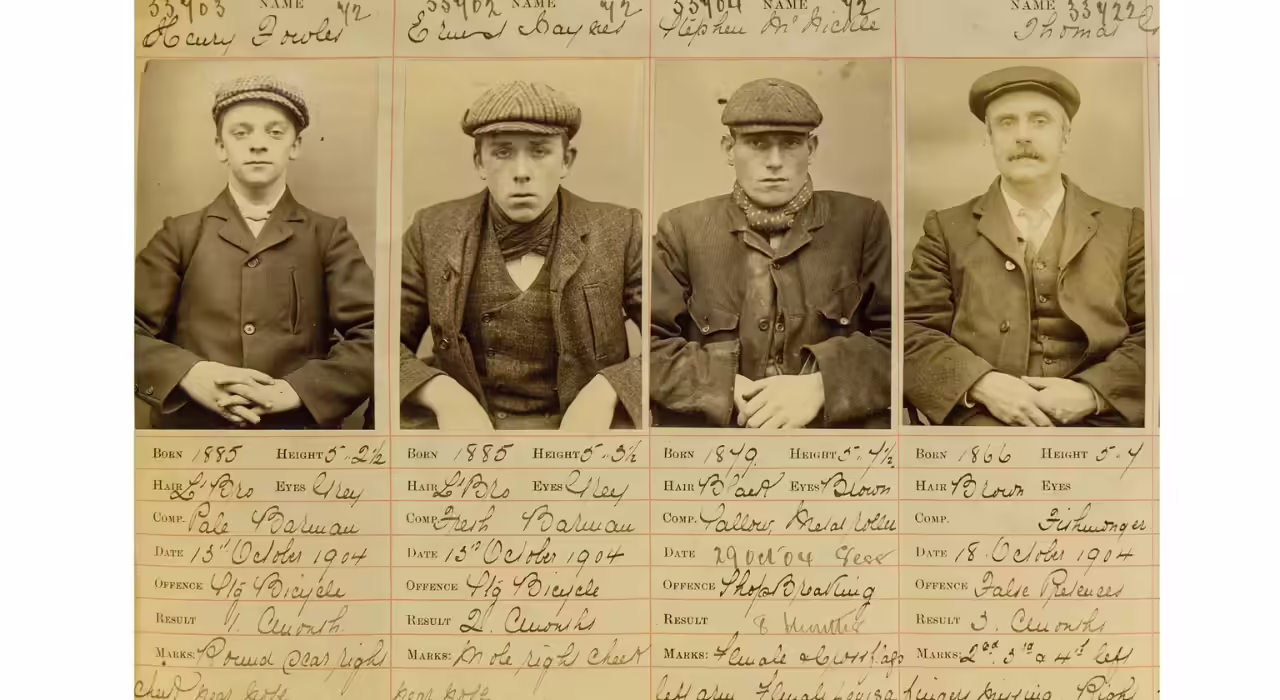 NAME NAME NAME NAME 33422
Henry Fowler Ernest Haynes Stephen McNickle Thomas
BORN 1885 HEIGHT 5..2½ BORN 1885 HEIGHT 5..3½ BORN 1879 HEIGHT 5..4½ BORN 1866 HEIGHT 5.4
HAIR Lt Bro EYES Grey HAIR Lt Bro EYES Grey HAIR Black EYES Brown HAIR Brown EYES
COMP. Pale Barman COMP. Fresh Barman COMP. Sallow, Metal roller COMP. Fishmonger
DATE 13th October 1904 DATE 13th October 1904 DATE 29 Oct 04 DATE 18. October 1904
OFFENCE Stg Bicycle OFFENCE Stg Bicycle OFFENCE ShopBreaking OFFENCE False Pretences
RESULT 1. Cmonth. RESULT 2. Cmonths RESULT 8 Months RESULT 3. Cmonths
MARKS: Round scar right MARKS: Mole right cheek MARKS: Female & Crossflags MARKS: 2nd. 3rd & 4th left
cheek near nose near nose left arm Female fingers missing